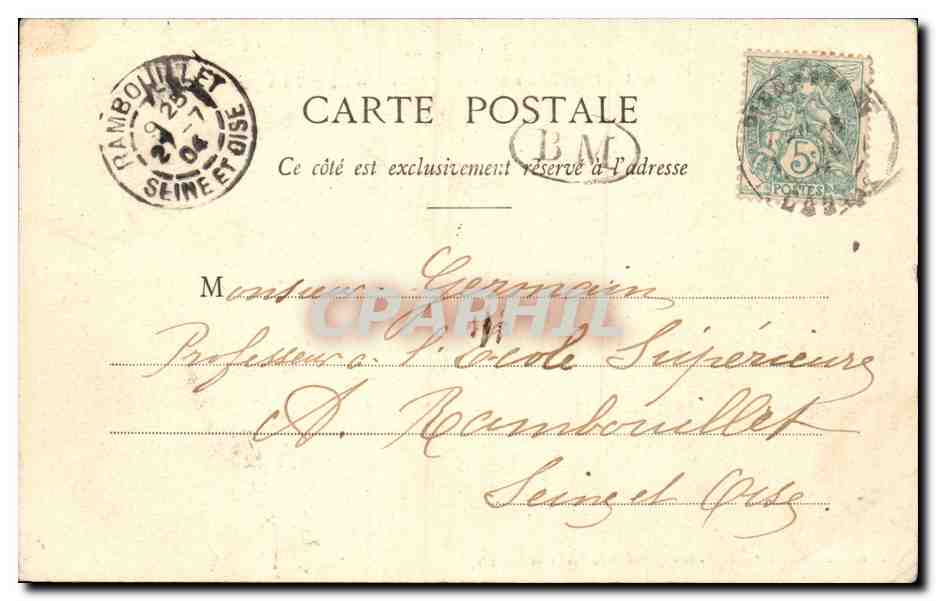 RAMBOUILLET
9 25
2 -7
04
SEINE ET OISE
CARTE POSTALE
BM
Ce côté est exclusivement réservé à l'adresse
5c
POSTES
Monsieur Germain
CPARHIL
Professeur à l'Ecole Supérieure
D. Rambouillet
Seine et Oise